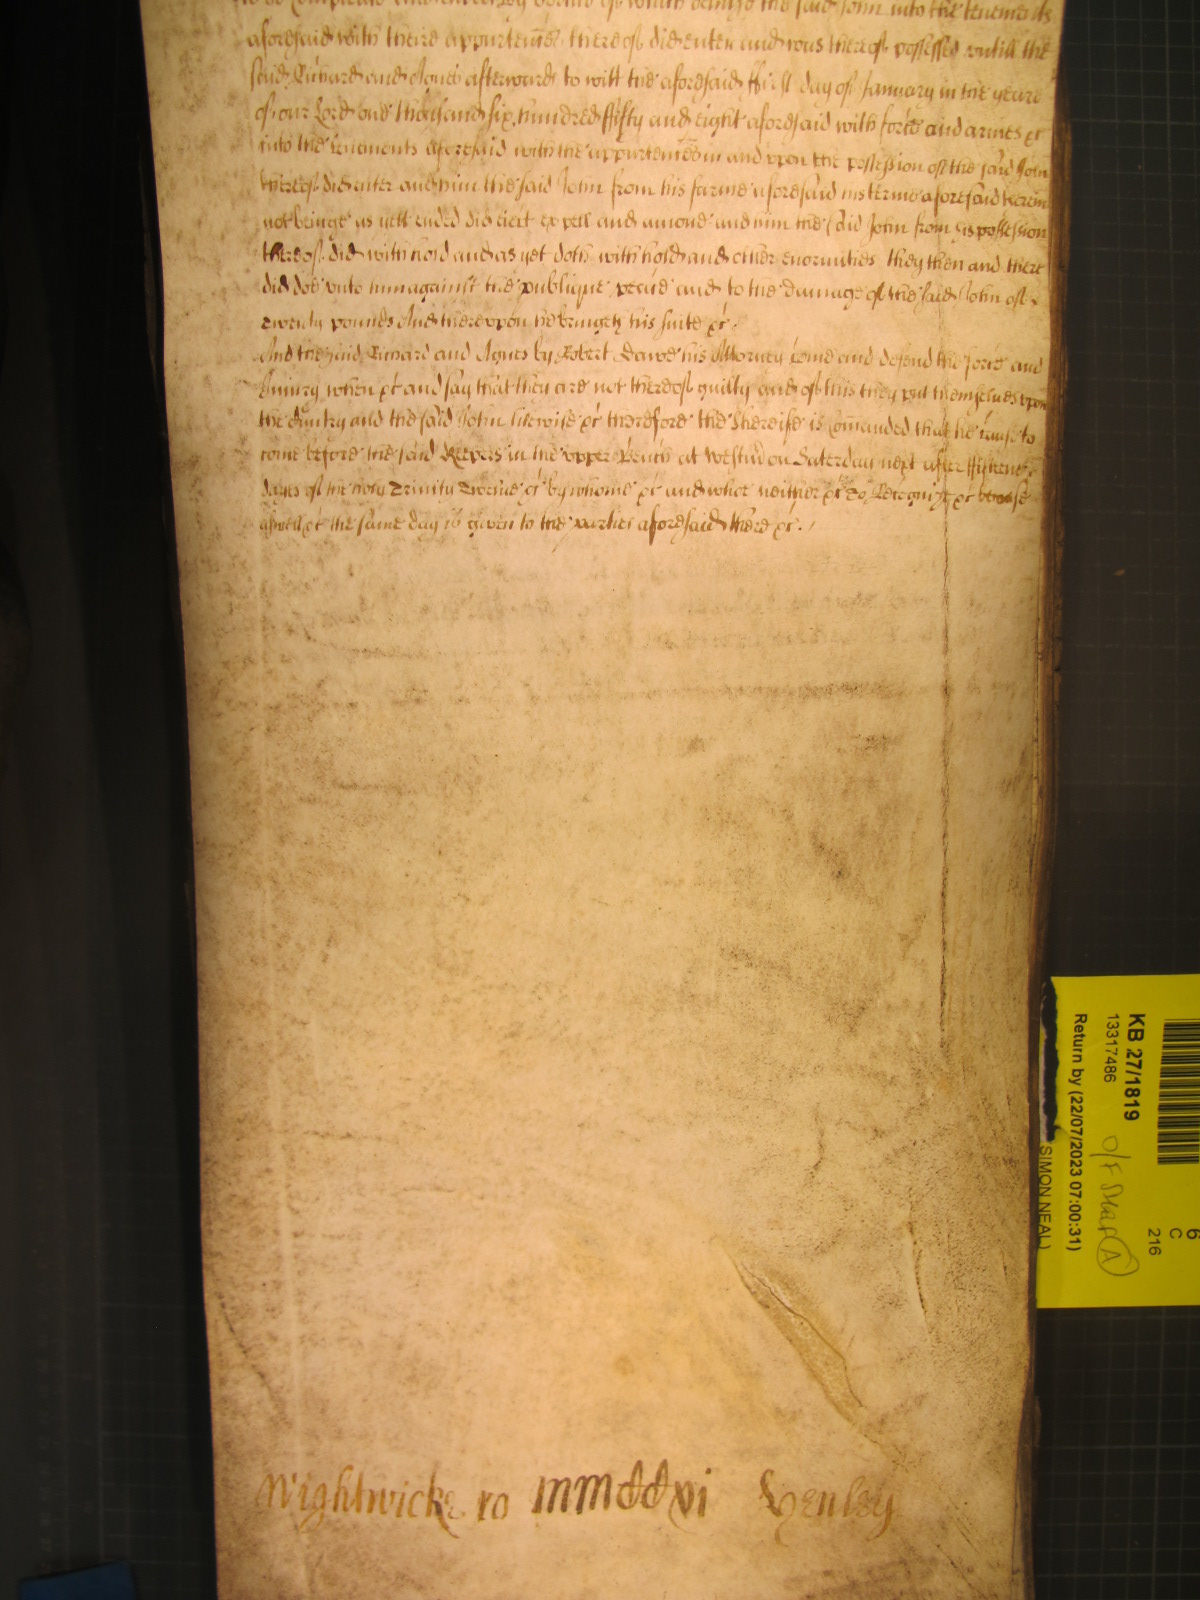 to be compleate and ended By vertue of which demise the said John into the tenements
aforesaid with theire appurtenñces thereof did enter and was thereof possessed vntill the
said Richard and Agnes afterwards to witt the aforesaid ffirst day of January in the yeare
of our Lord one thousand six hundred ffifty and eight aforesaid with force and armes &c
into the tenements aforesaid with the appurtenñces in and vpon the possession of the said John
thereof did enter and him the said John from his farme aforesaid his terme aforesaid therein
not beinge as yett ended did eiect expell and amove and him the said John from his possession
thereof did with hold and as yet doth with hold and other enormities they then and there
did doe vnto him against the publique peace and to the damage of the said John of
twenty pounds And therevpon he bringeth his suite &c.
And the said Richard and Agnes by Robert Dawe his Attorney come and defend the force and
Iniury when &c and say that they are not thereof guilty and of this they put themselues vpon
the Cuntry and the said John likewise &c therefore the Shereife is comanded that he cause to
come before the said Keepers in the vpper Bench at Westm̃ on Saterday next after ffifteene
dayes of the holy Trinity twelue &c by whome &c and whoe neither &c to Recognize &c because
aswell &c the same day is given to the parties aforesaid there &c.
Wightwicke ro mmddvi Henley
KB 27/1819
13317486
Return by (22/07/2023 07:00:31)
SIMON NEAL)
O/F Map A
216
C
6